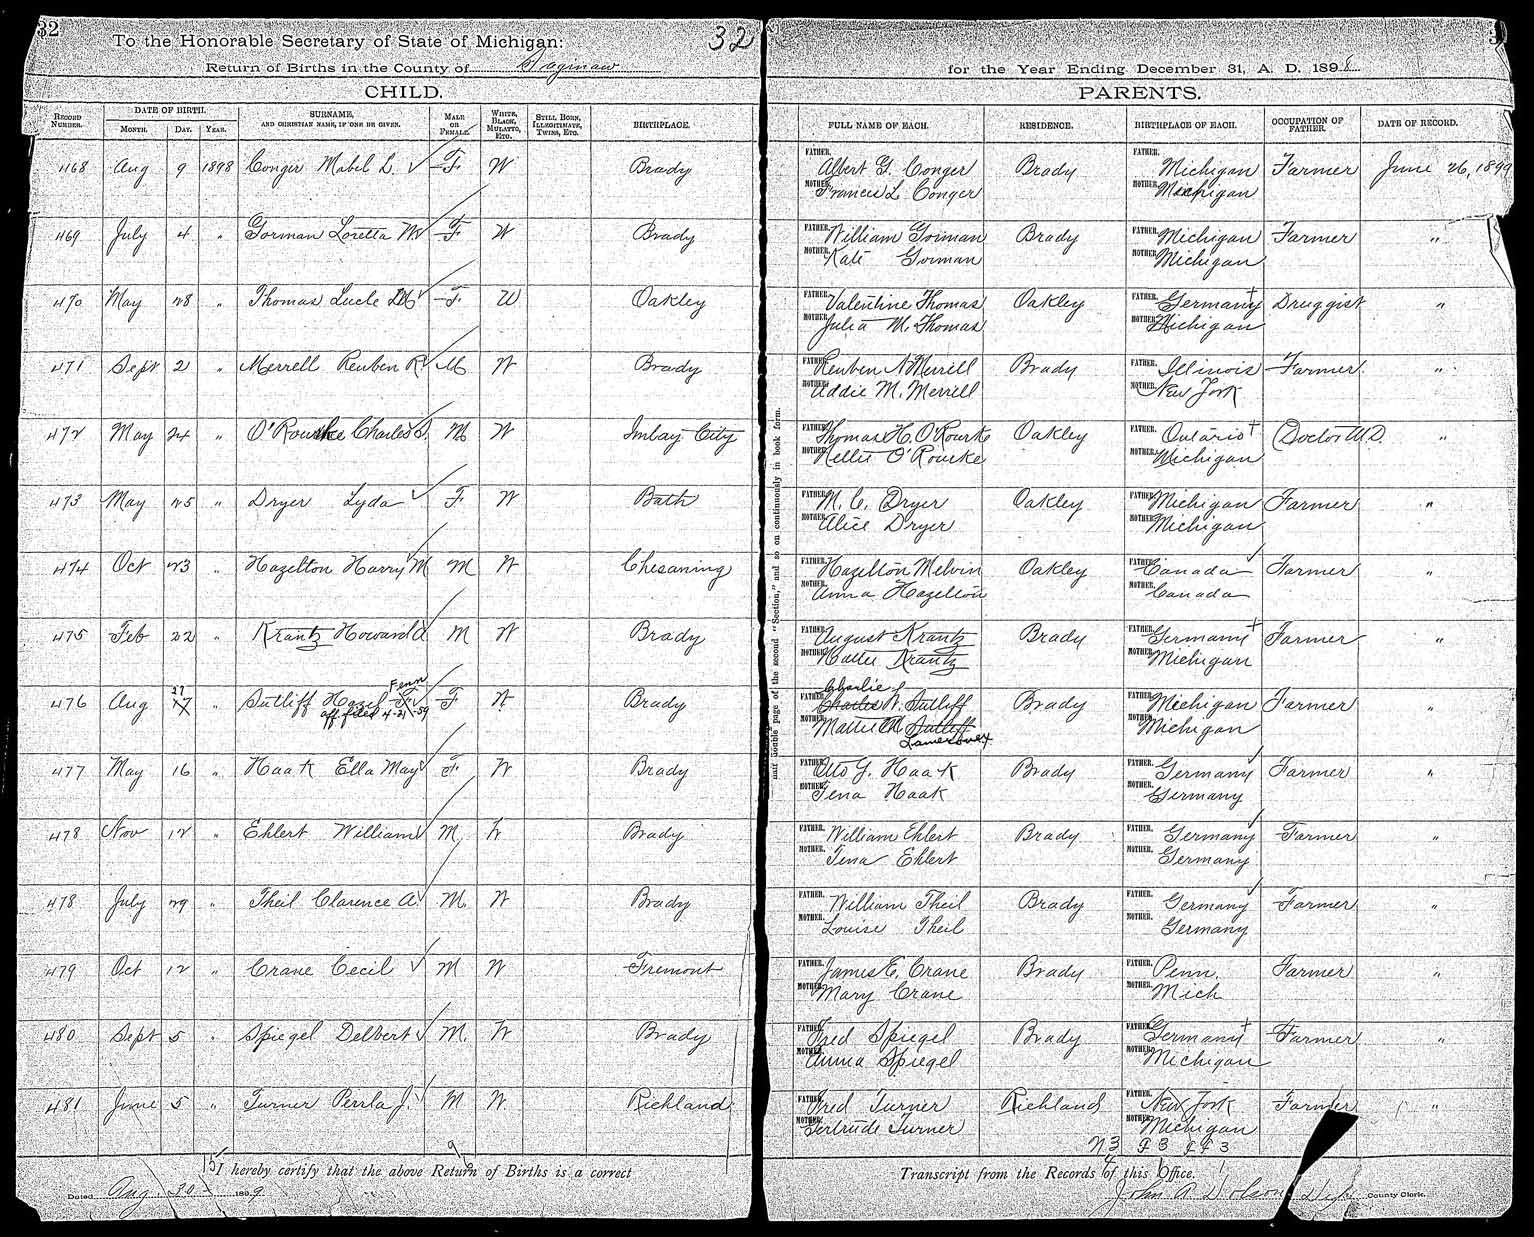 32
To the Honorable Secretary of State of Michigan:
32
Return of Births in the County of Saginaw
for the Year Ending December 31, A. D. 1898
CHILD.
PARENTS.
RECORD NUMBER.
DATE OF BIRTH.
MONTH. DAY. YEAR.
SURNAME, AND CHRISTIAN NAME, IF ONE BE GIVEN.
MALE OR FEMALE.
WHITE, BLACK, MULATTO, ETC.
STILL BORN, ILLEGITIMATE, TWINS, ETC.
BIRTHPLACE.
FULL NAME OF EACH.
RESIDENCE.
BIRTHPLACE OF EACH.
OCCUPATION OF FATHER.
DATE OF RECORD.
468 Aug 9 1898 Conger Mabel L. F W Brady FATHER. Albert G. Conger Brady FATHER. Michigan Farmer June 26, 1899
MOTHER. Frances L Conger MOTHER. Michigan
469 July 4 " Gorman Loretta W F W Brady FATHER. William Gorman Brady FATHER. Michigan Farmer "
MOTHER. Kate Gorman MOTHER. Michigan
470 May 28 " Thomas Lucle F W Oakley FATHER. Valentine Thomas Oakley FATHER. Germany Druggist "
MOTHER. Julia M. Thomas MOTHER. Michigan
471 Sept 2 " Merrell Reuben R. M W Brady FATHER. Reuben N Merrill Brady FATHER. Illinois Farmer "
MOTHER. Addie M. Merrill MOTHER. New York
472 May 24 " O'Rourke Charles S. M W Imlay City FATHER. Thomas H. O'Rourke Oakley FATHER. Ontario Doctor M.D. "
MOTHER. Nellie O'Rourke MOTHER. Michigan
473 May 25 " Dryer Lyda F W Bath FATHER. M. C. Dryer Oakley FATHER. Michigan Farmer "
MOTHER. Alice Dryer MOTHER. Michigan
474 Oct 23 " Hazelton Harry M M W Chesaning FATHER. Hazelton Melvin Oakley FATHER. Canada Farmer "
MOTHER. Anna Hazelton MOTHER. Canada
475 Feb 22 " Krantz Howard A M W Brady FATHER. August Krantz Brady FATHER. Germany Farmer "
MOTHER. Hattie Krantz MOTHER. Michigan
27 Fenn Charlie
476 Aug 17 " Sutliff Hazel F. F W Brady FATHER. Charles W. Sutliff Brady FATHER. Michigan Farmer "
aff filed 4-21-59 MOTHER. Mattie M Sutliff MOTHER. Michigan
Lamereaux
477 May 16 " Haak Ella May F W Brady FATHER. Otto G. Haak Brady FATHER. Germany Farmer "
MOTHER. Tena Haak MOTHER. Germany
478 Nov 12 " Ehlert William M. W Brady FATHER. William Ehlert Brady FATHER. Germany Farmer "
MOTHER. Tena Ehlert MOTHER. Germany
478 July 29 " Theil Clarence A. M. W Brady FATHER. William Theil Brady FATHER. Germany Farmer "
MOTHER. Louise Theil MOTHER. Germany
479 Oct 12 " Crane Cecil M W Fremont FATHER. James E. Crane Brady FATHER. Penn. Farmer "
MOTHER. Mary Crane MOTHER. Mich
480 Sept 5 " Spiegel Delbert M. W Brady FATHER. Fred Spiegel Brady FATHER. Germany Farmer "
MOTHER. Anna Spiegel MOTHER. Michigan
481 June 5 " Turner Perrla J. M W Richland FATHER. Fred Turner Richland FATHER. New York Farmer "
MOTHER. Gertrude Turner MOTHER. Michigan
half double page of the second "Section," and so on continuously in book form.
I hereby certify that the above Return of Births is a correct Transcript from the Records of this Office.
Dated Aug. 30 1899 John A Dolson County Clerk.